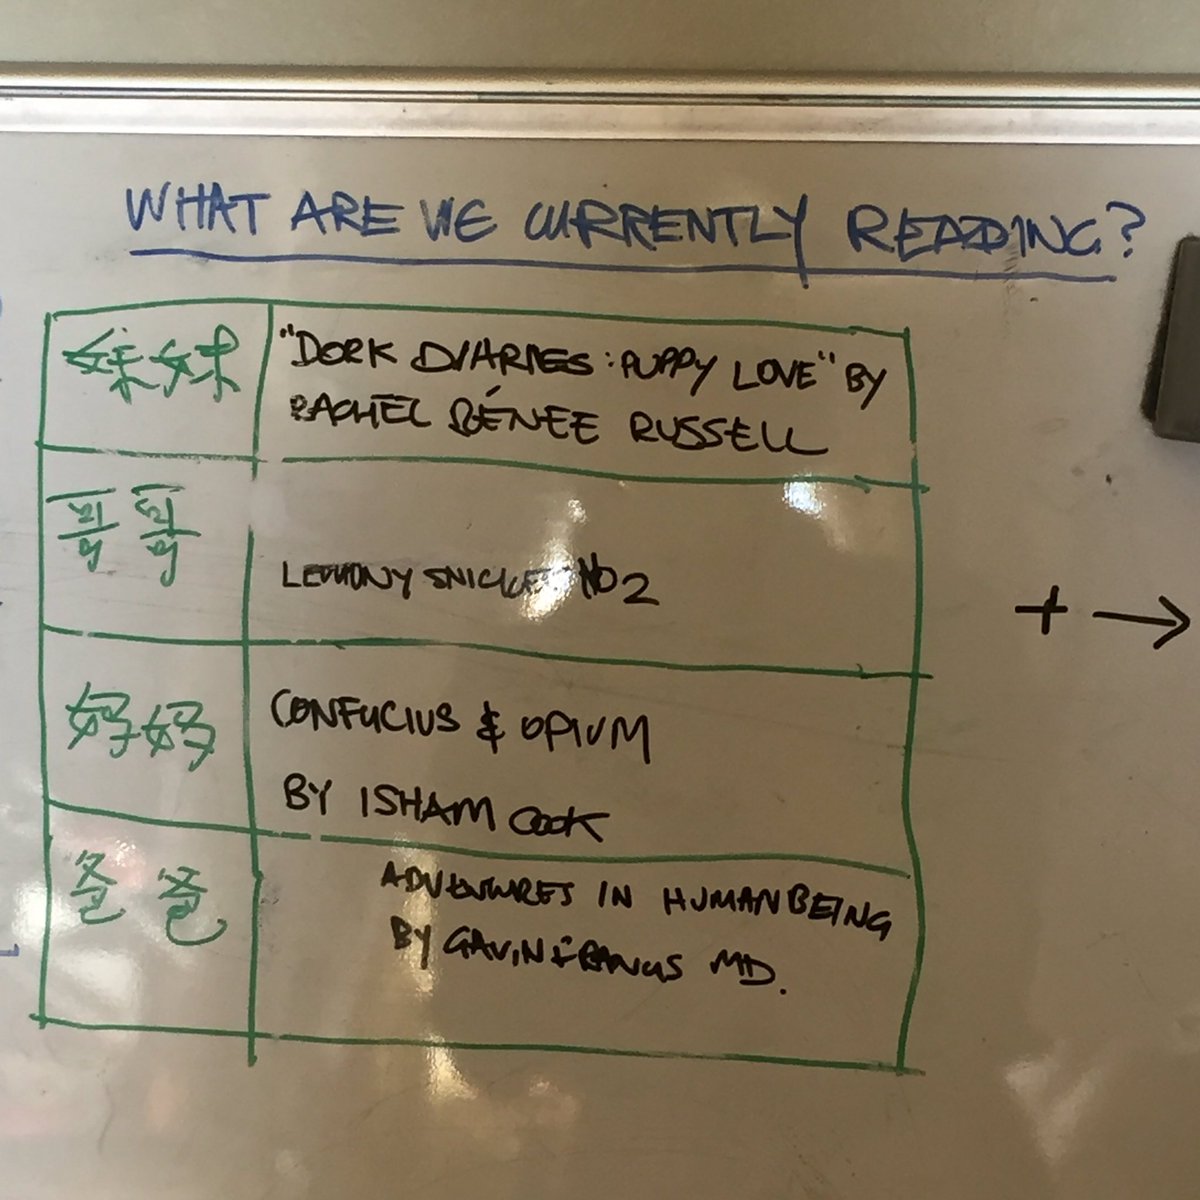 WHAT ARE WE CURRENTLY READING?
妹妹
"DORK DIARIES: PUPPY LOVE" BY
RACHEL RÉNEE RUSSELL
哥哥
LEMONY SNICKET NO 2
妈妈
CONFUCIUS & OPIUM
BY ISHAM COOK
爸爸
ADVENTURES IN HUMAN BEING
BY GAVIN FRANCIS MD.
+ →